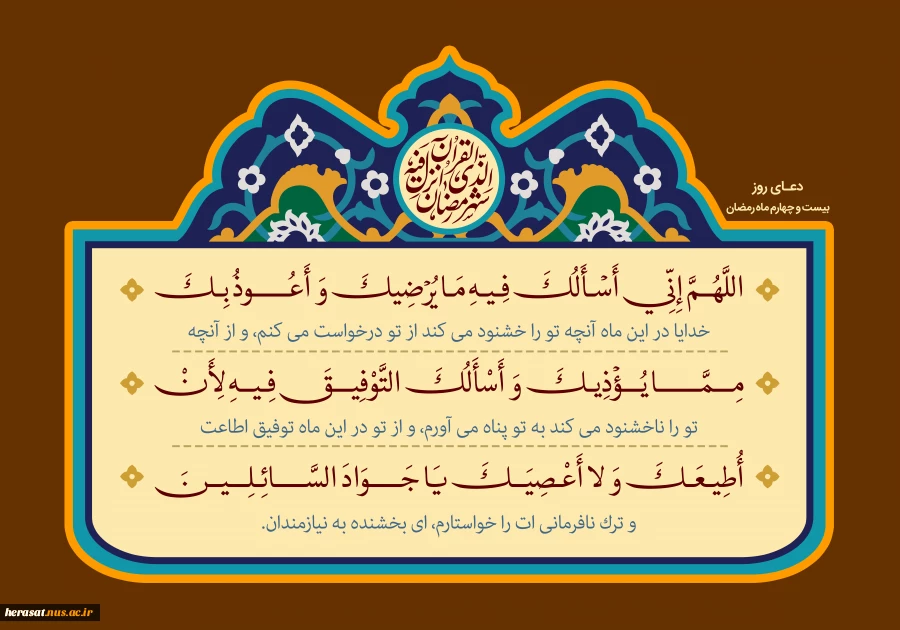 شهر رمضان الذی انزل فیه القرآن
دعـای روز
بیست و چهارم ماه رمضان
اللَّهُمَّ إِنِّي أَسْأَلُكَ فِيهِ مَا يُرْضِيكَ وَ أَعُوذُ بِكَ
خدایا در این ماه آنچه تو را خشنود می کند از تو درخواست می کنم، و از آنچه
مِمَّا يُؤْذِيكَ وَ أَسْأَلُكَ التَّوْفِيقَ فِيهِ لِأَنْ
تو را ناخشنود می کند به تو پناه می آورم، و از تو در این ماه توفیق اطاعت
أُطِيعَكَ وَ لا أَعْصِيَكَ يَا جَوَادَ السَّائِلِينَ
و ترك نافرمانی ات را خواستارم، ای بخشنده به نیازمندان.
herasat.nus.ac.ir